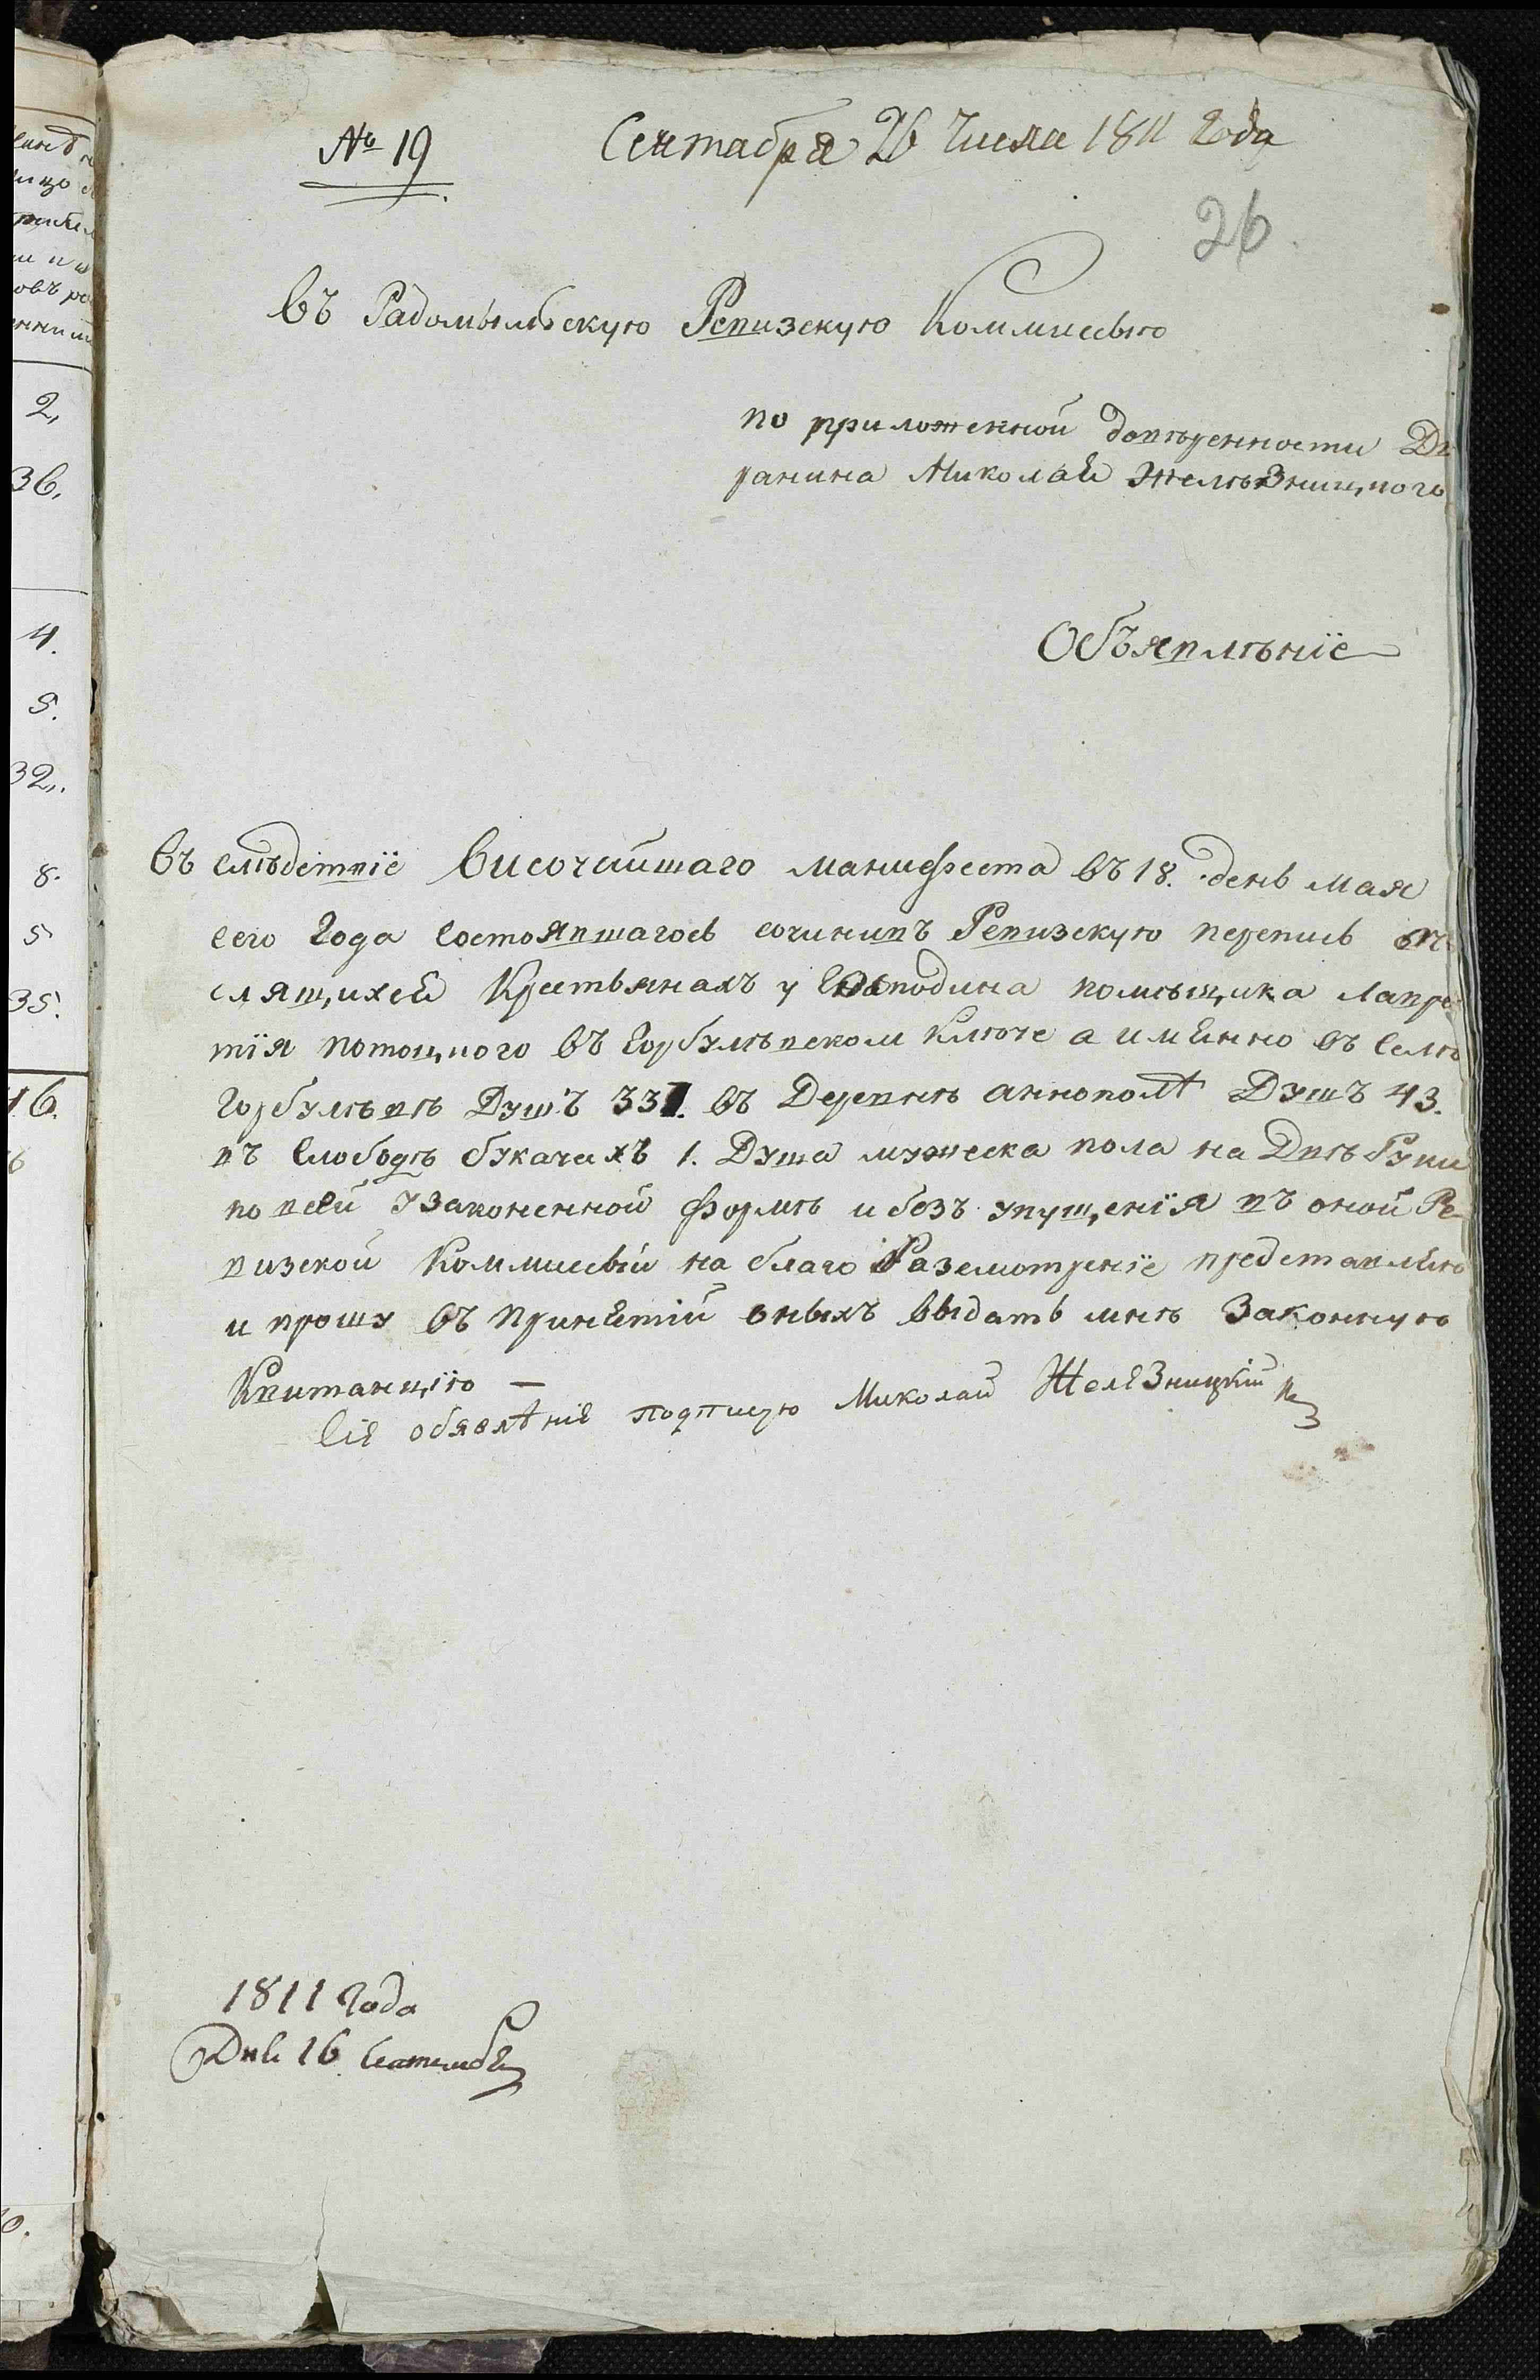 № 19
Сентабря 26 Числа 1811 Года
26.
Въ Радомыльскую Ревизскую Коммиссыю
по приложенной довѣренности Дв
ранина Миколая Желѣзницкого
Объявлѣніе
Въ слѣдствіе Височайшаго манифеста въ 18. день мая
сего Года Состоявшагось сочинивъ Ревизскую перепись
слящихся Крестьянахъ у Господина помѣщика Лавре
тія потоцкого въ Горбулѣвском Ключе а именно въ Селѣ
Горбулѣвѣ Душъ 331. въ Деревнѣ аннополѣ Душъ 43.
въ Слободѣ букачахъ 1. Душа мужеска пола на Двѣ Руки
по всей узаконенной формѣ и безъ упущенія въ оной Ре
визской Коммиссыи на благо Разсмотреніе представляю
и прошу въ Принятій оныхъ Выдать мнѣ Законную
Квитанцію —
Сіе обявлѣніе подписую Миколай Желѣзницкій
1811 Года
Дня 16 Сентембя
2,
36,
4.
5.
32,.
8.
5
35.
16.